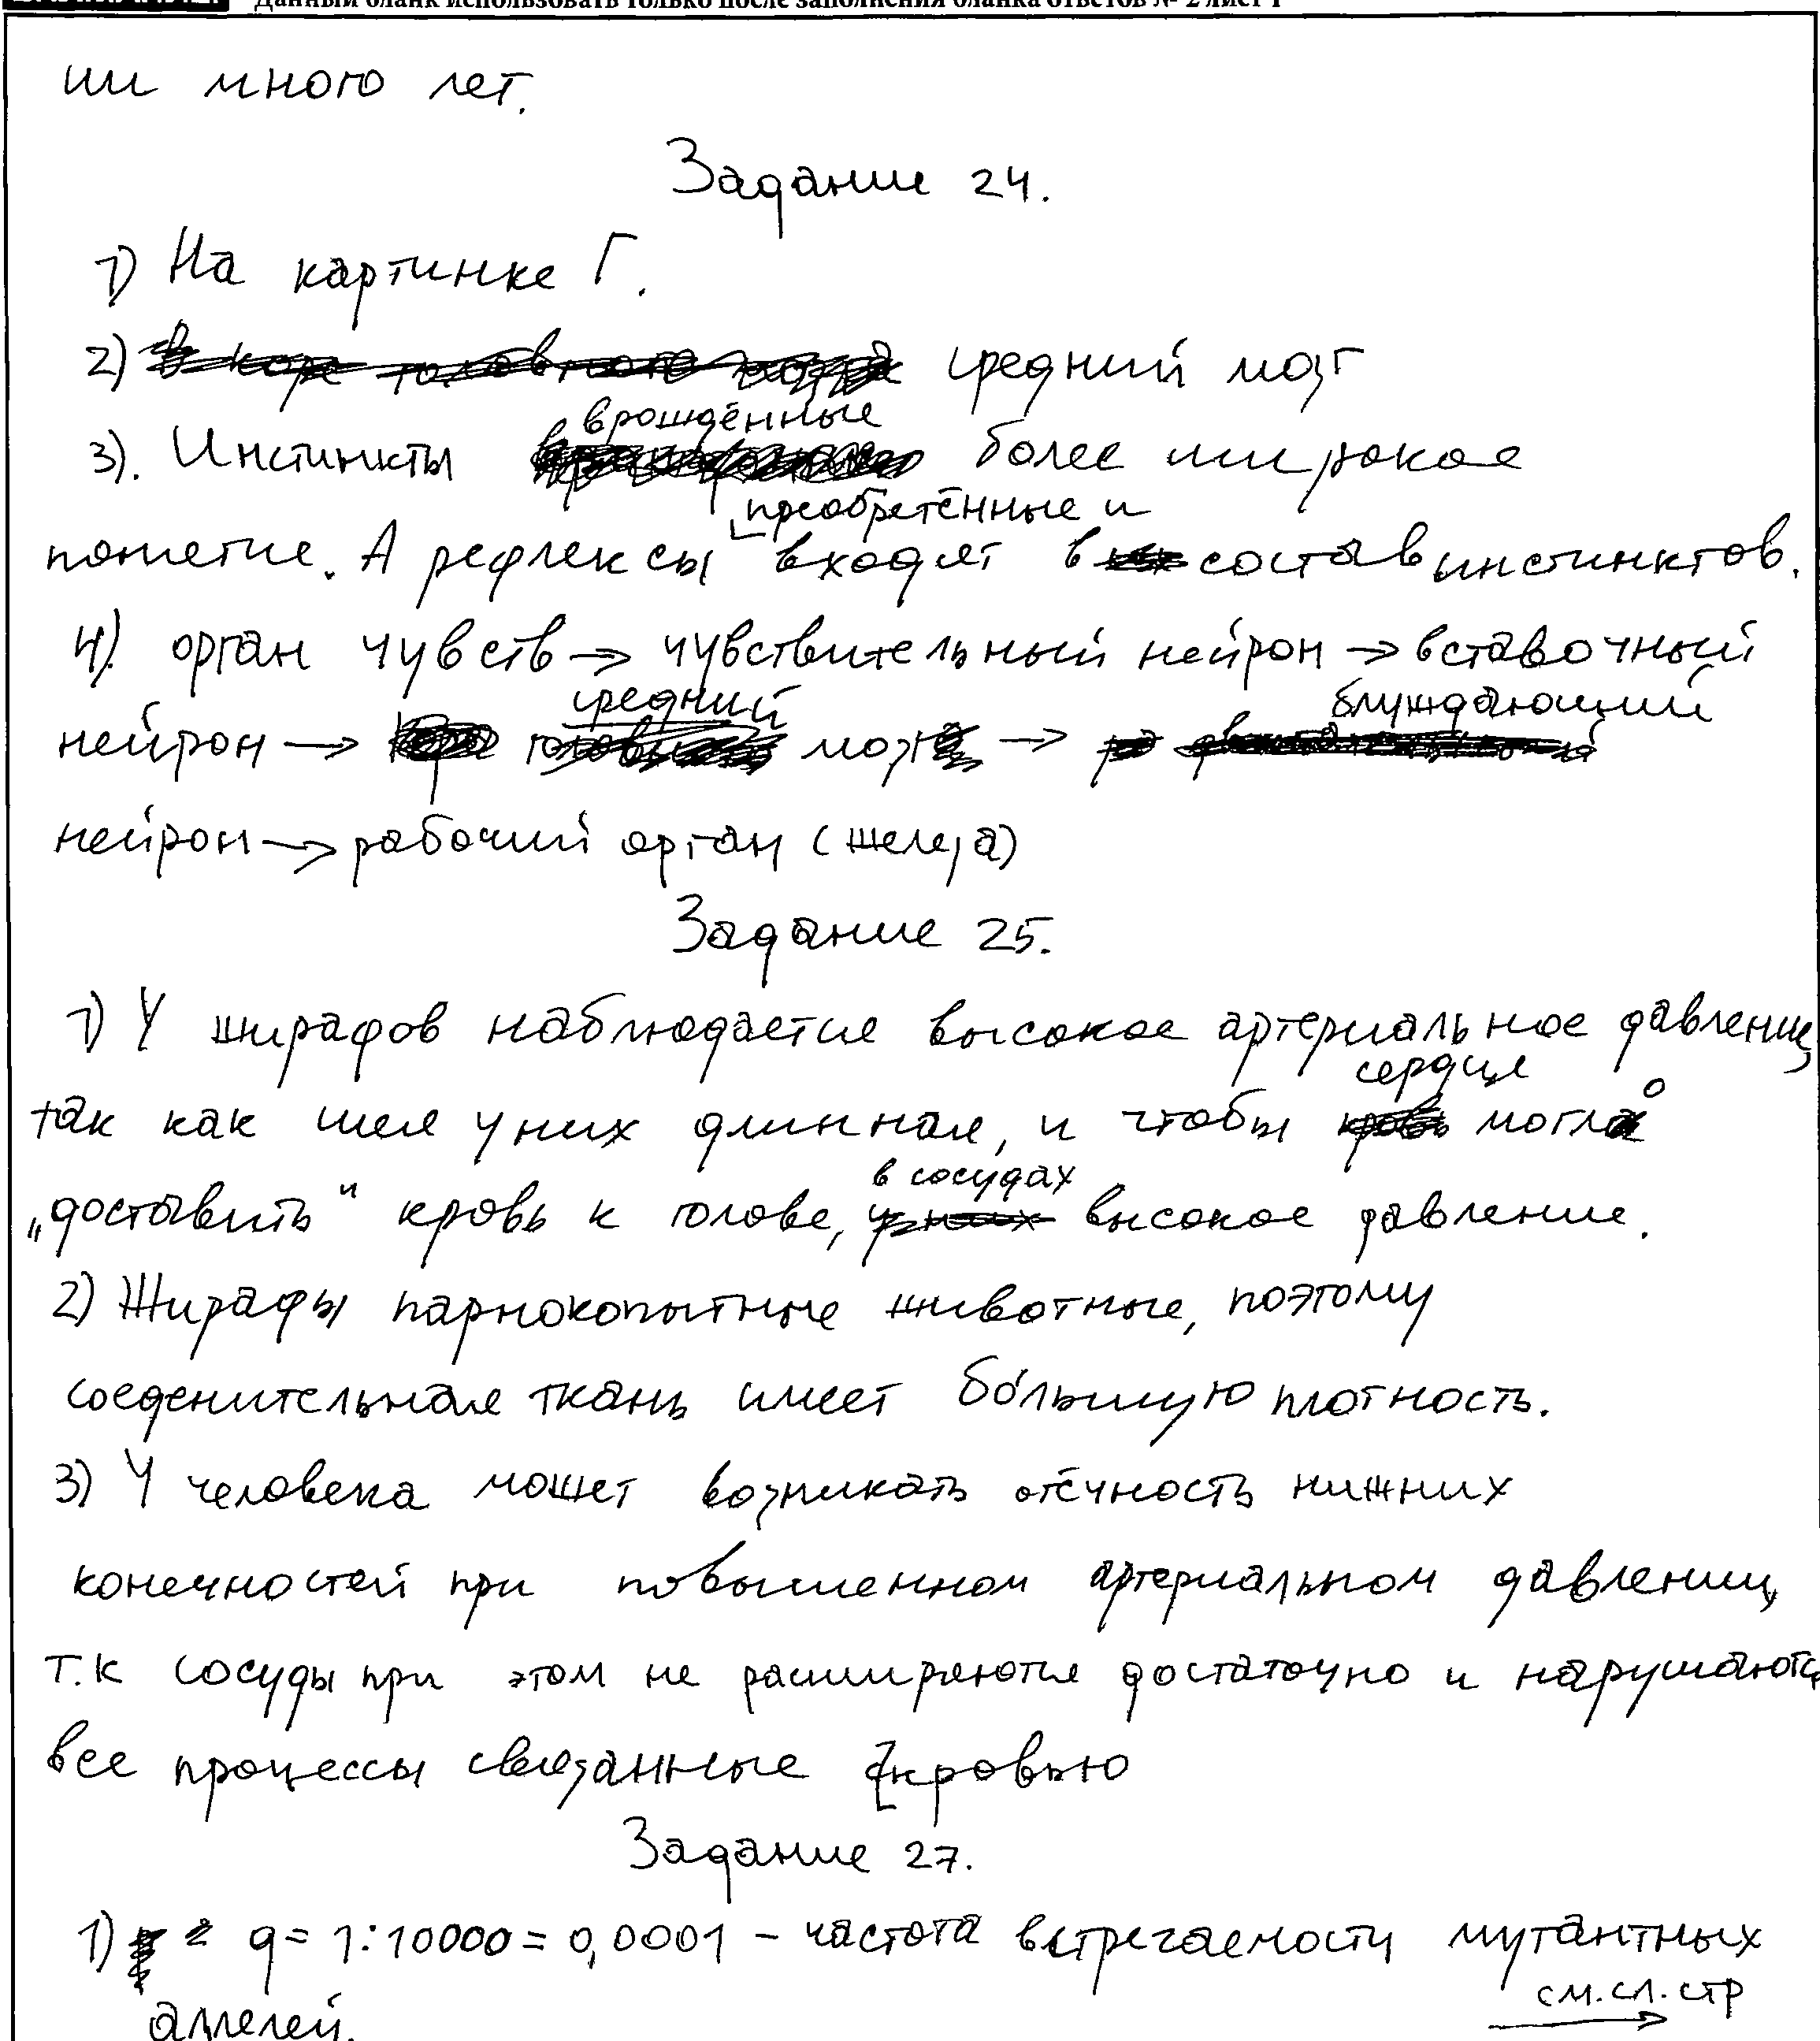 Данный бланк использовать только после заполнения бланка ответов № 2 лист 1
ии много лет.
Задание 24.
1) На картинке Г.
2) в коре головного мозга средний мозг
3). Инстинкты врождённые более широкое
понятие. А рефлексы преобретённые и входят в состав инстинктов.
4). орган чувств → чувствительный нейрон → вставочный
нейрон → средний мозг → блуждающий
нейрон → рабочий орган (железа)
Задание 25.
1) У жирафов наблюдается высокое артериальное давление,
так как шея у них длинная, и чтобы сердце могло
„доставить" кровь к голове, в сосудах высокое давление.
2) Жирафы парнокопытные животные, поэтому
соеденительная ткань имеет бо́льшую плотность.
3) У человека может возникать отёчность нижних
конечностей при повышенном артериальном давлении,
т.к сосуды при этом не расширяются достаточно и нарушаются
все процессы связанные с кровью
Задание 27.
1) q = 1:10000 = 0,0001 – частота встречаемости мутантных
аллелей.
см. сл. стр →